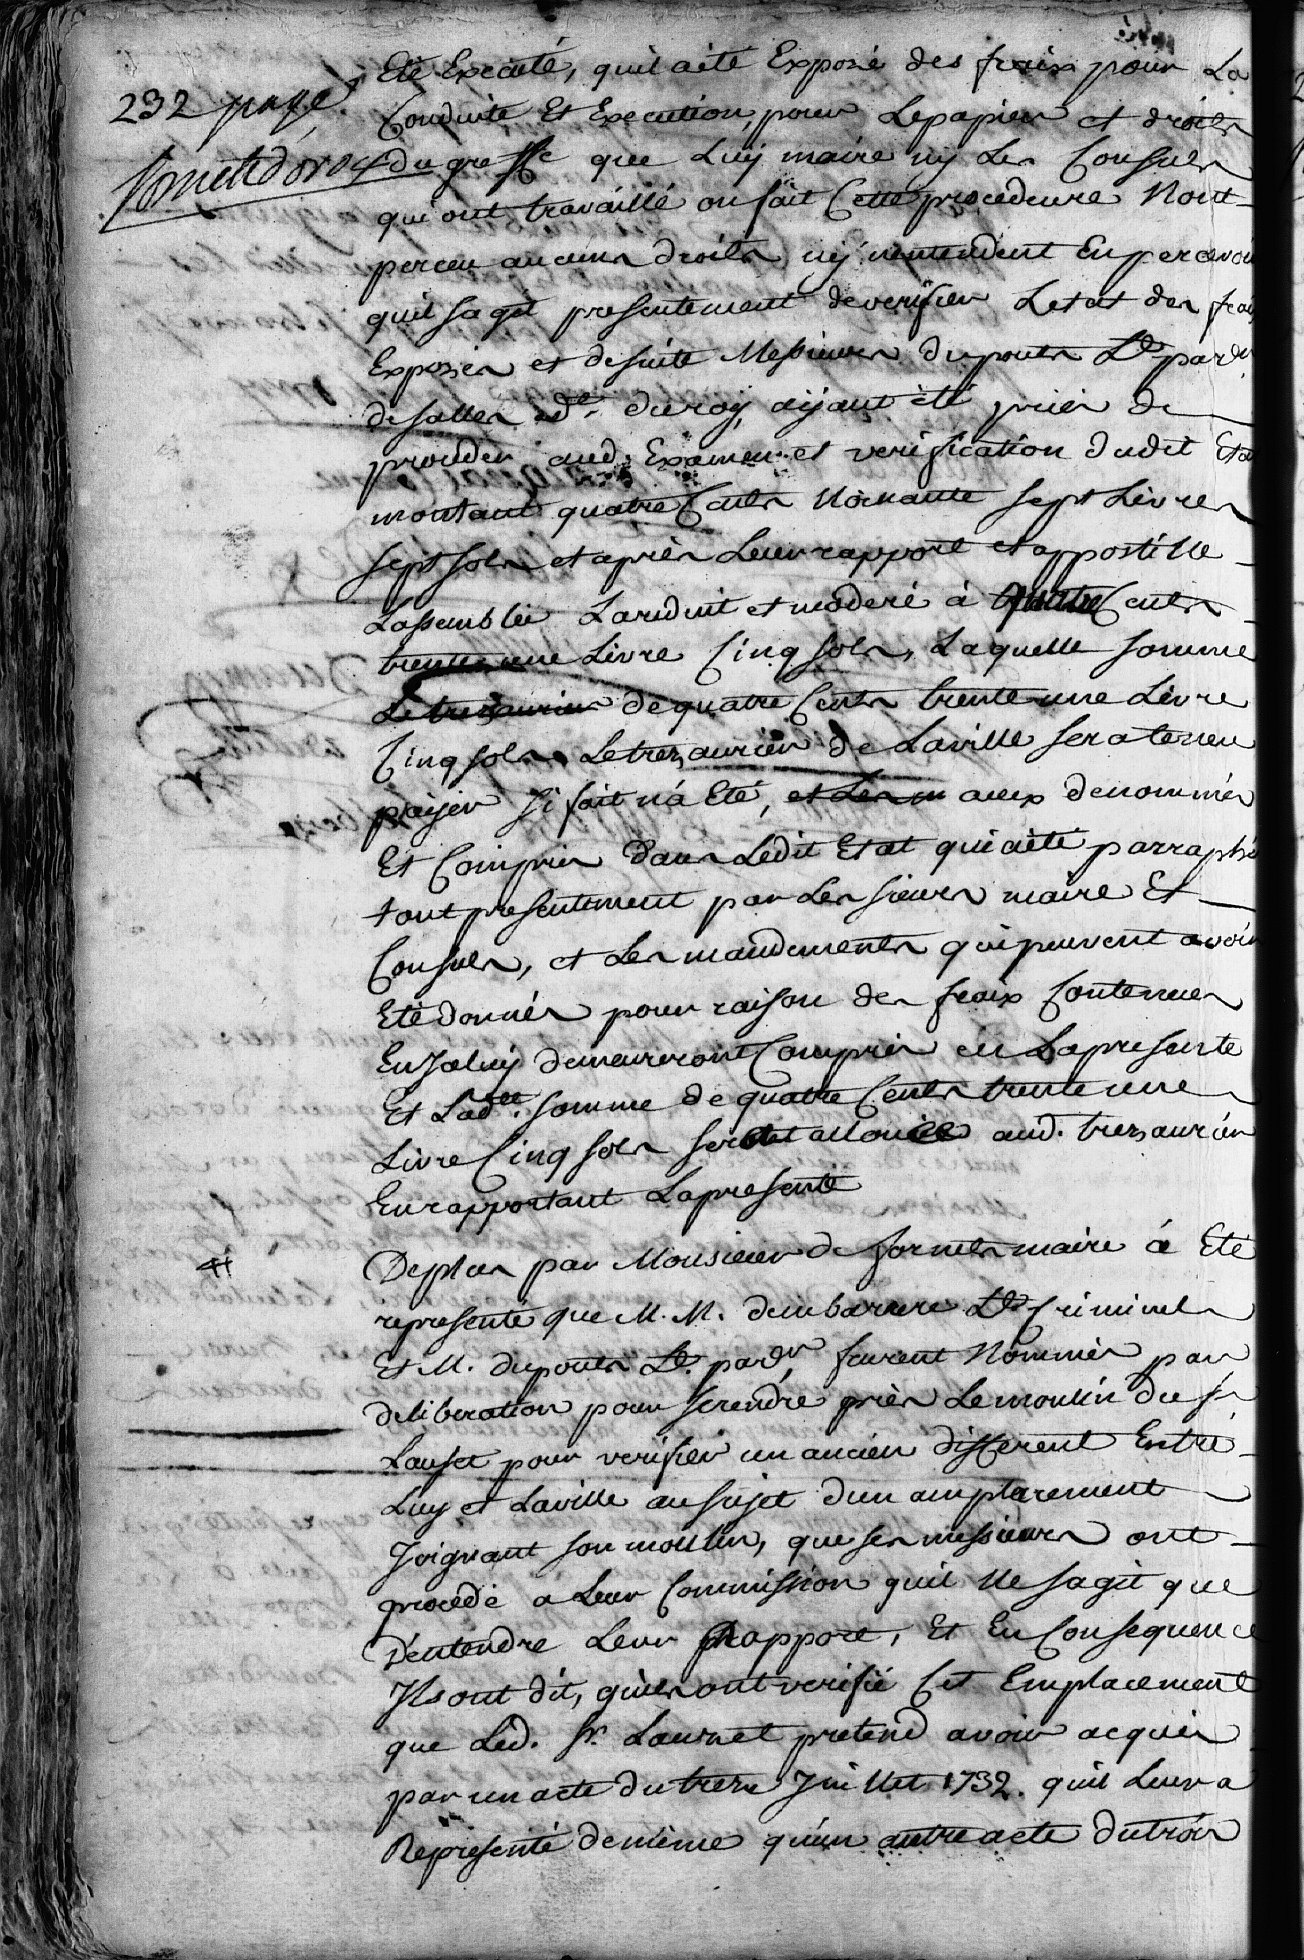 232 page
Eté Executé, quil a eté Exposé des fraix pour La
Conduite Et Execution, pour Le papier et droits
du greffe que Luy maire ny Les Consuls
qui ont travaillé ou fait Cette procedeure Nont
perceu aucuns droits ny nentendent En percevoir
quil sagit presentement deverifier Letat des fraix
Exposés et desuite Messieurs Duponts Lt par.er
desalles ad.t du roy, aÿant été priés de
proceder aud. Examen et verification dudit Etat
montant quatre Cents Nonante sept Livres
sept sols et après Leur rapport et appostille
Lassemblée Lareduit et moderé à quatre Cents
trente une Livre Cinq sols, Laquelle somme
Le trezaurier de quatre Cents trente une Livre
Cinq sols Le trezaurier de Laville sera teneu
païjer si fait n'a Eté, et Les aux denommés
Et Compris Dans Ledit Etat qui a eté parraphé
tout presentement par Les sieurs maire Et
Consuls, et Les mandements qui peuvent avoir
Eté donnés pour raison des fraix Conteneus
En Jceluy demeureront Compris en Lapresente
Et Lad.te somme de quatre Cents trente une
Livre Cinq sols sera allouée aud. trezaurier
En rapportant Lapresente
Deplus par Monsieur de fornets maire a Eté
representé que M. M. dembarrere Lt Criminel
Et M. duponts Lt. par.er furent Nommés par
deliberation pour serendre près Le moulin du sr
Lauset pour verifier un ancien different Entre
Luy et Laville au sujet d'un amplacement
Joignant son moulin, que ses messieurs ont
procedé a Leur Commission quil Ne sagit que
D'entendre Leur Rapport, Et En Consequence
Jls ont dit, quils ont verifié Cet Emplacement
que Led. sr. Laurnet pretend avoir acquis
par un acte du treze Juillet 1732. quil Leur a
Representé de même qu'un autre acte du trois